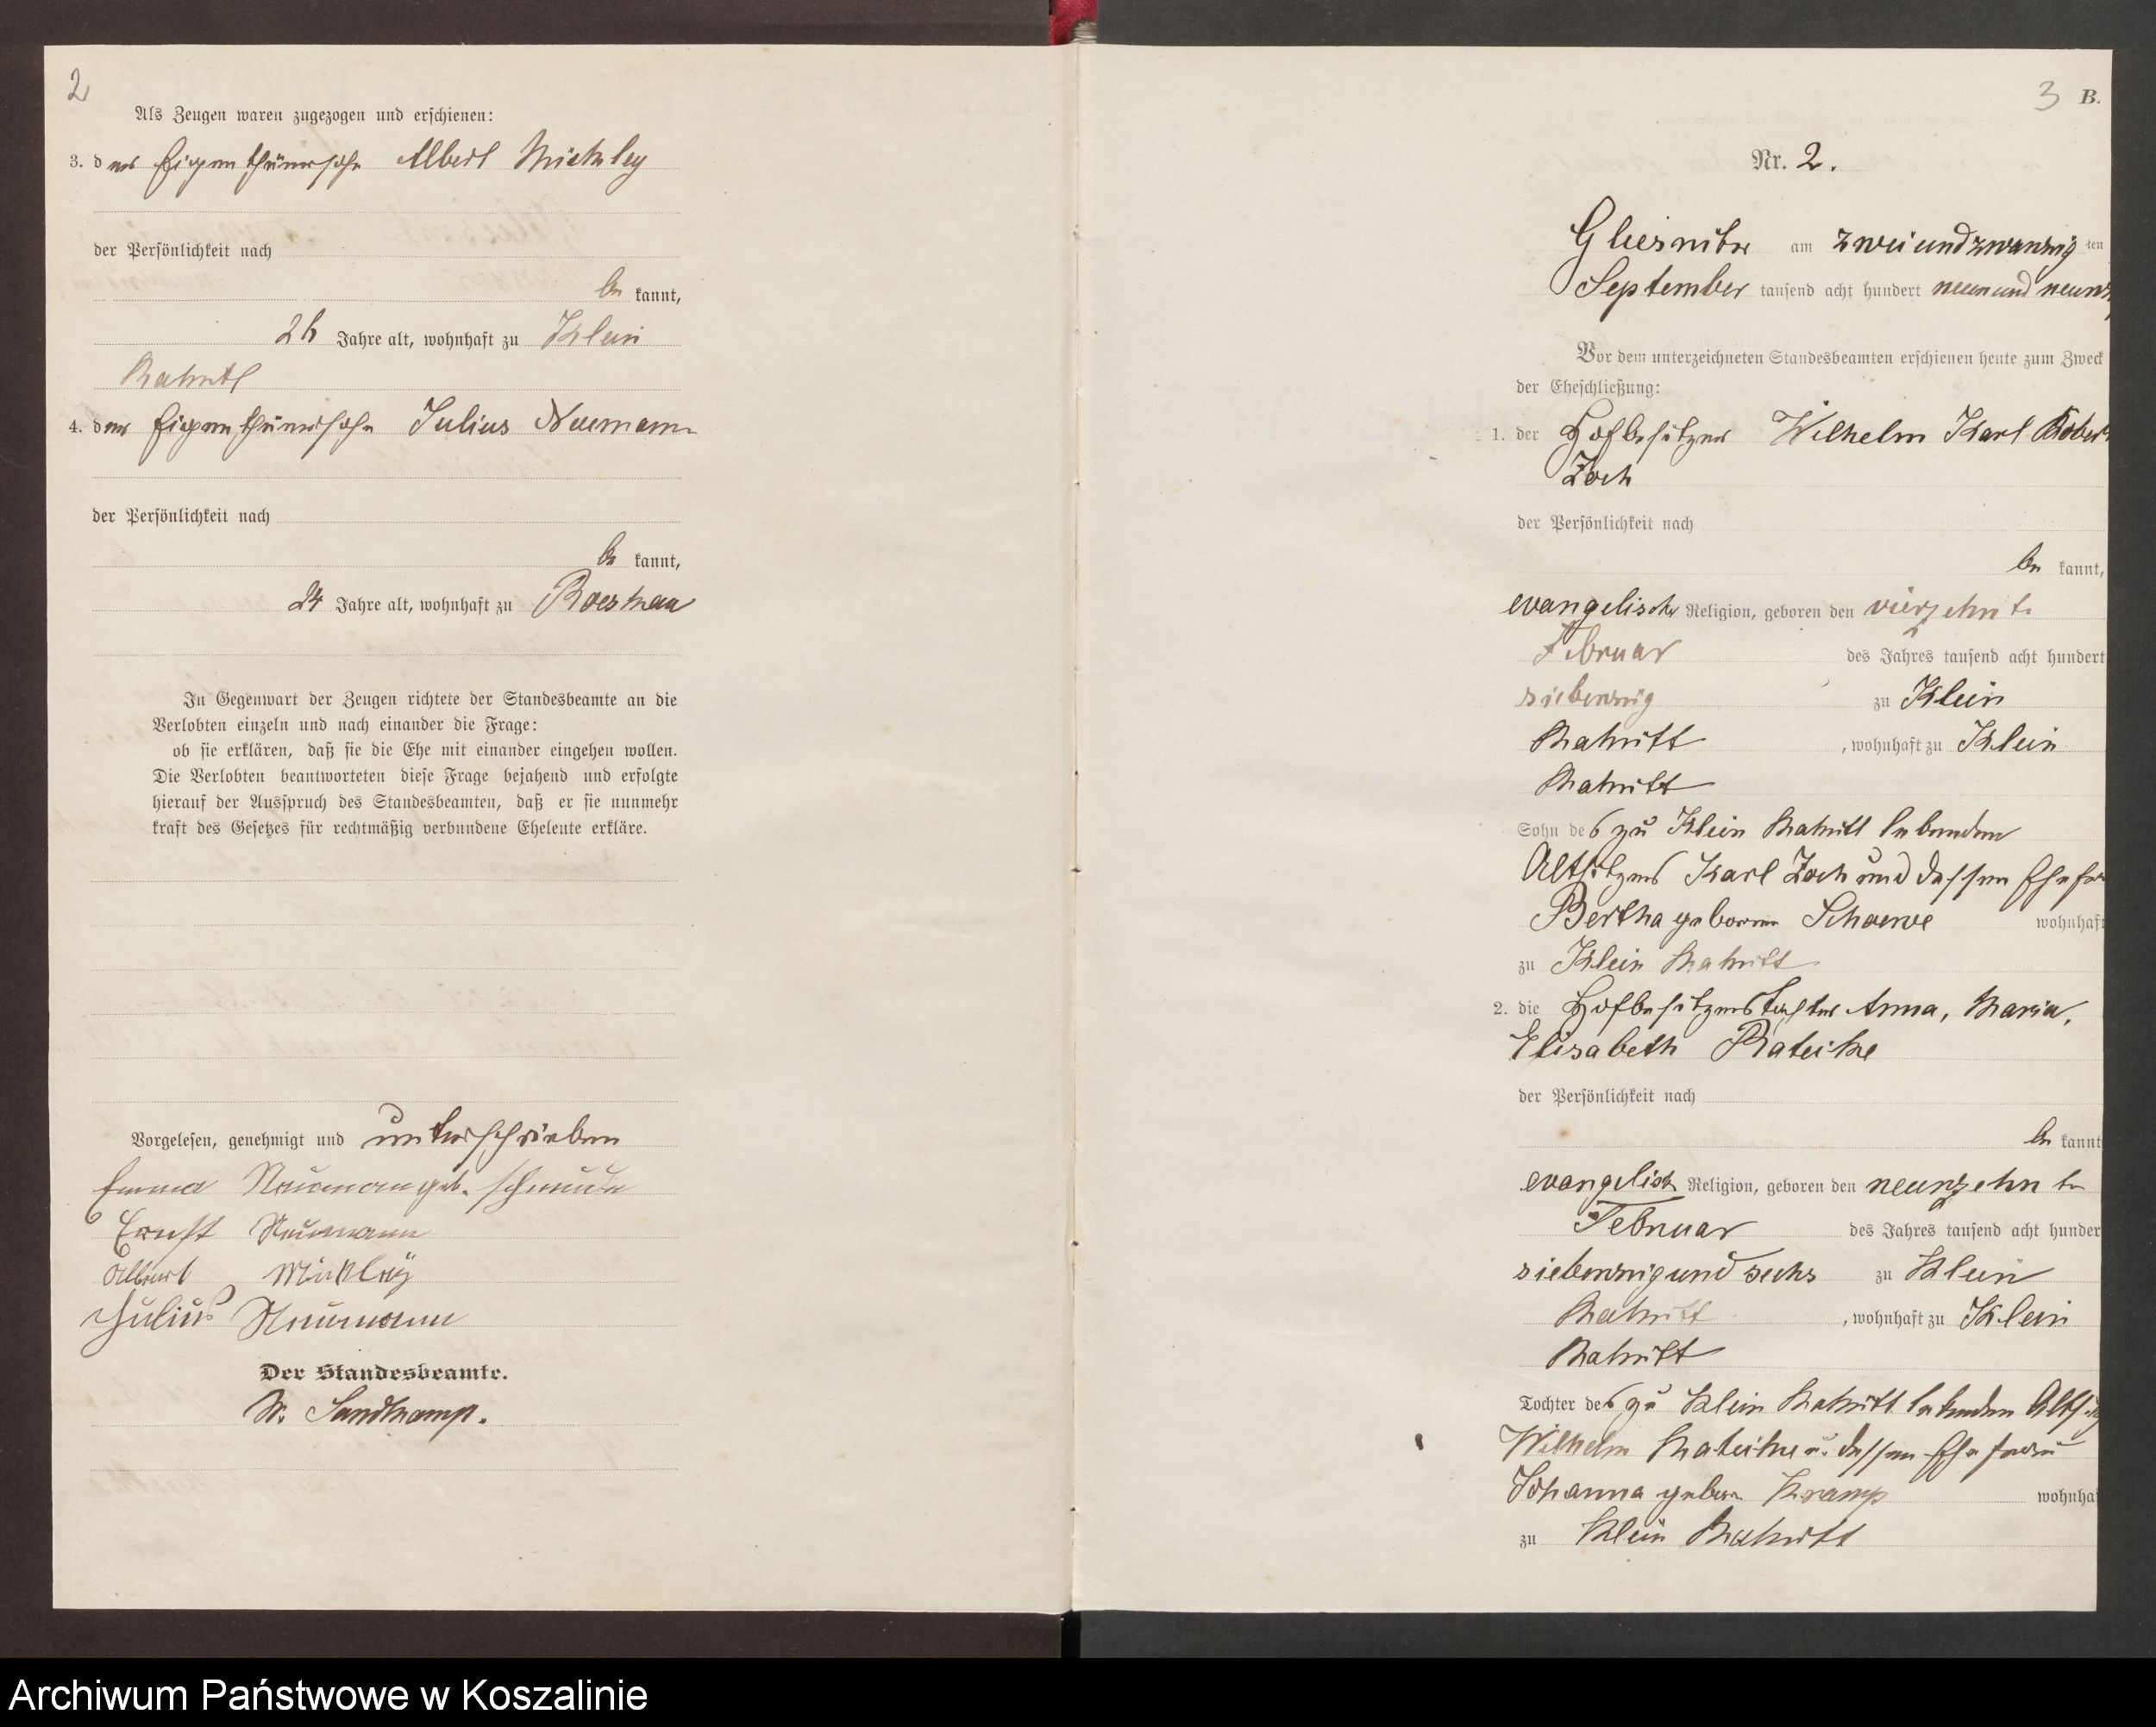 2
Als Zeugen waren zugezogen und erschienen:
3. der Eigenthümersohn Albert Mickley
der Persönlichkeit nach
be kannt,
26 Jahre alt, wohnhaft zu Klein
Machmitt
4. der Eigenthümersohn Julius Neumann
der Persönlichkeit nach
be kannt,
24 Jahre alt, wohnhaft zu Roeskau
In Gegenwart der Zeugen richtete der Standesbeamte an die
Verlobten einzeln und nach einander die Frage:
ob sie erklären, daß sie die Ehe mit einander eingehen wollen.
Die Verlobten beantworteten diese Frage bejahend und erfolgte
hierauf der Ausspruch des Standesbeamten, daß er sie nunmehr
kraft des Gesetzes für rechtmäßig verbundene Eheleute erkläre.
Vorgelesen, genehmigt und unterschrieben
Emma Neumann geb. Schmude
Ernst Neumann
Albert Micklÿ
Julius Neumann
Der Standesbeamte.
W. Sandkamp.
3 B.
Nr. 2.
Gliesnitz am zweiundzwanzig ten
September tausend acht hundert neunundneunz
Vor dem unterzeichneten Standesbeamten erschienen heute zum Zweck
der Eheschließung:
1. der Hofbesitzer Wilhelm Karl Rober
Zoch
der Persönlichkeit nach
be kannt,
evangelischer Religion, geboren den vierzehnten
Februar des Jahres tausend acht hundert
siebenzig zu Klein
Machmitt, wohnhaft zu Klein
Machmitt
Sohn des zu Klein Machmitt lebenden
Altsitzers Karl Zoch und dessen Ehefra
Bertha geborene Schoewe wohnhaft
zu Klein Machmitt
2. die Hofbesitzerstochter Anna, Maria,
Elisabeth Rateike
der Persönlichkeit nach
be kannt
evangelisch Religion, geboren den neunzehnten
Februar des Jahres tausend acht hunder
siebenzigundsechs zu Klein
Machmitt, wohnhaft zu Klein
Machmitt
Tochter des zu Klein Machmitt lebenden Altsitz
Wilhelm Rateike u. dessen Ehefrau
Johanna geboren Kramp wohnha
zu Klein Machmitt
Archiwum Państwowe w Koszalinie